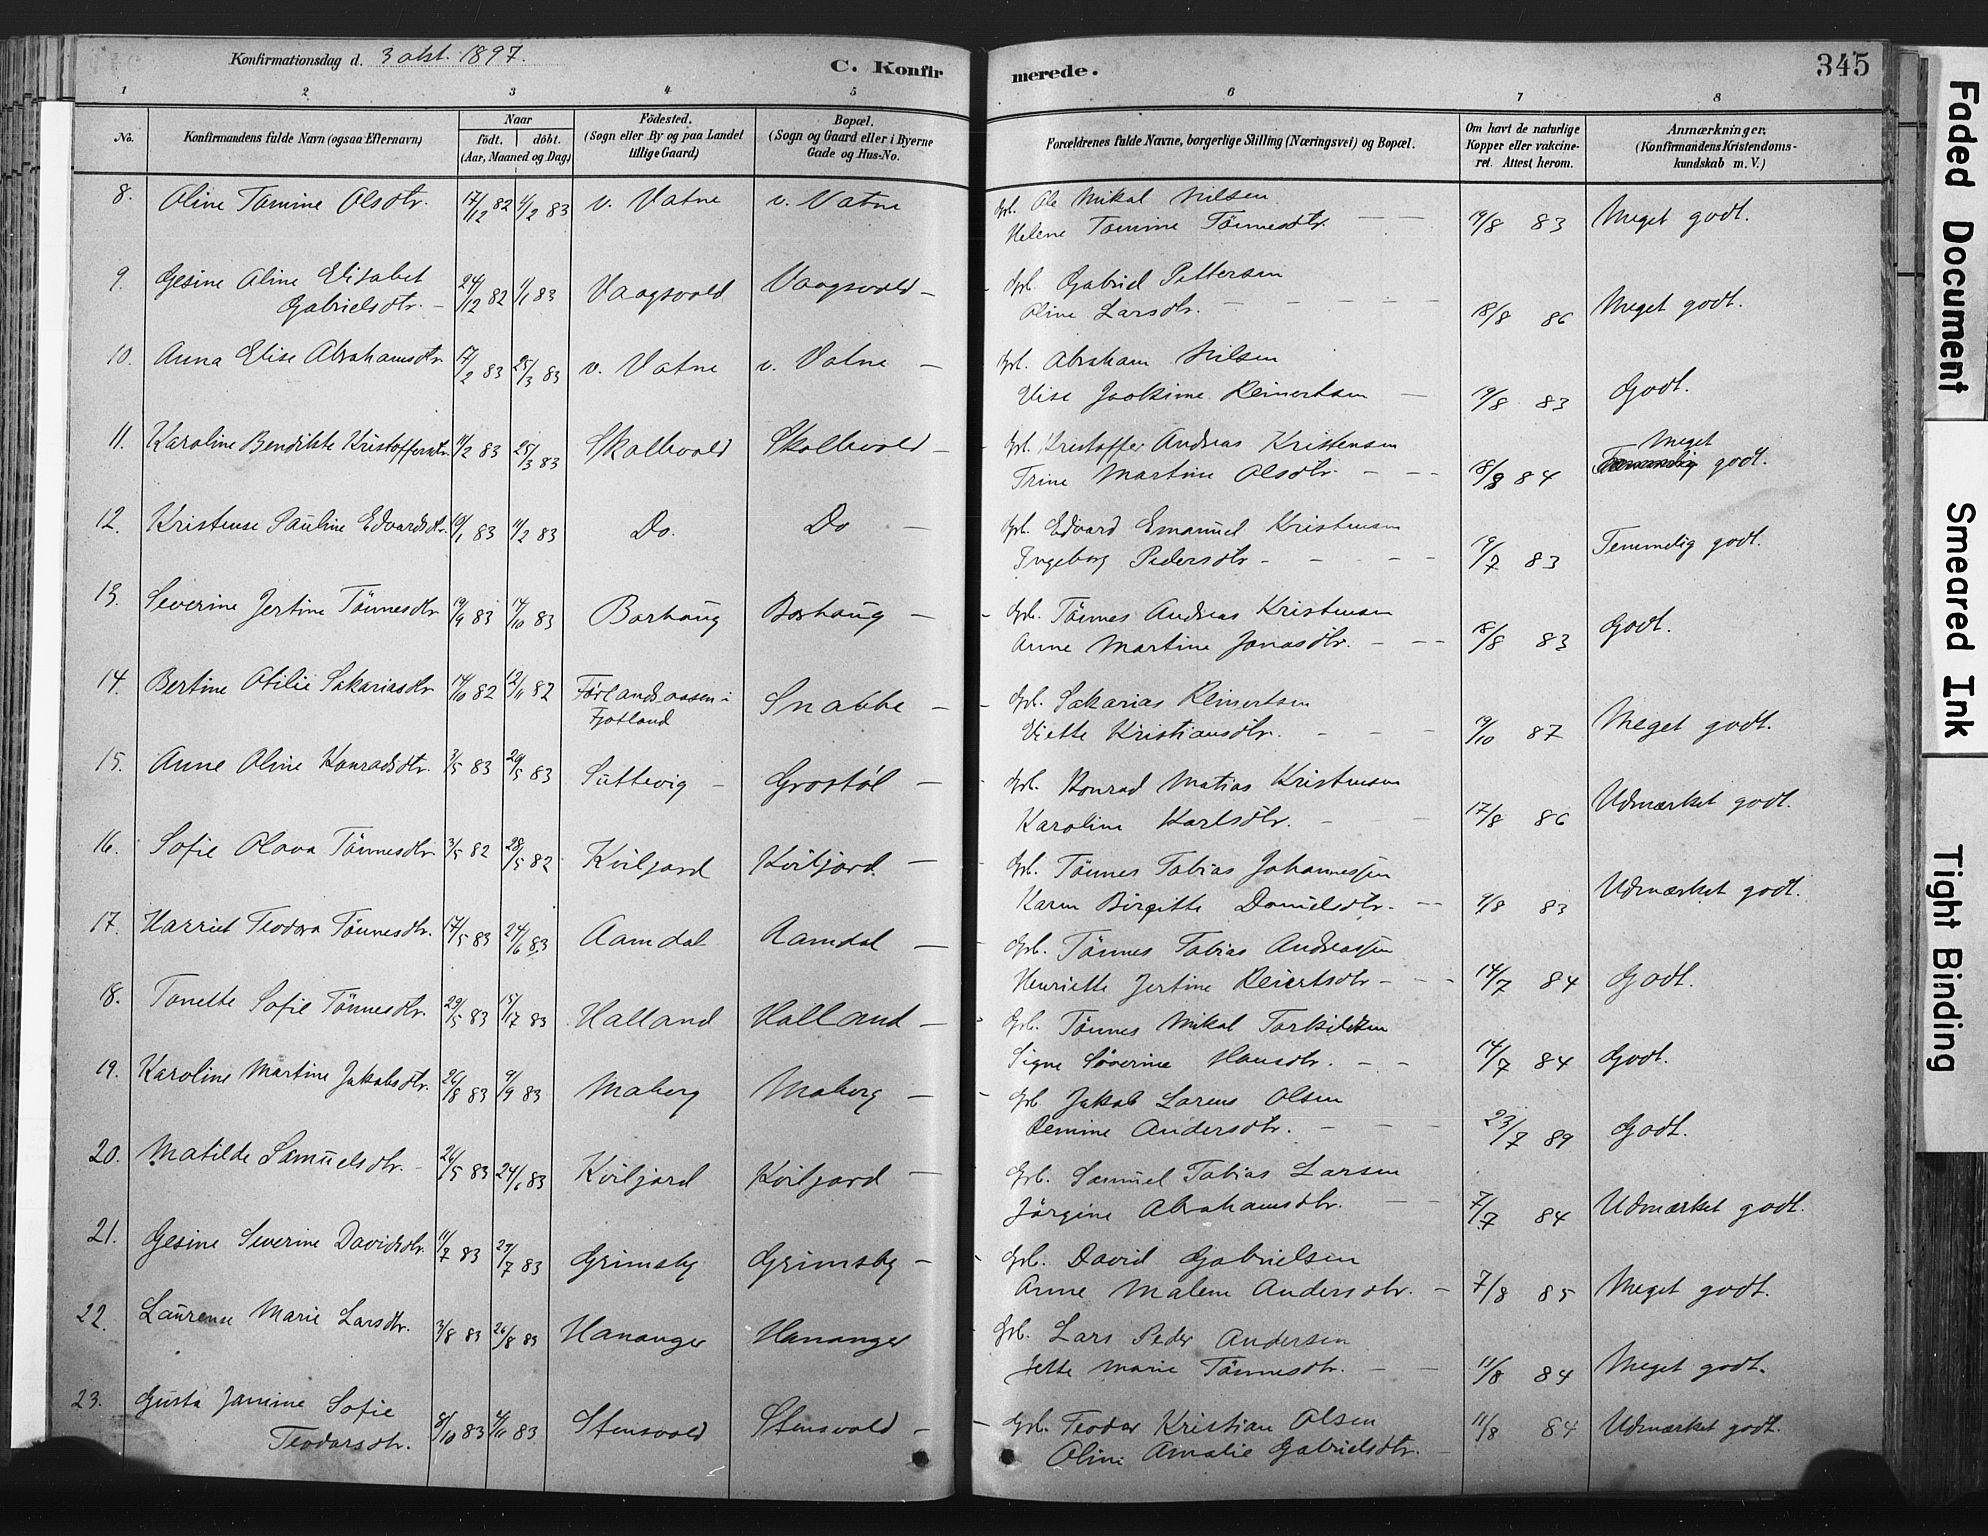 Konfirmationsdag d. 3 okt. 1897.
C. Konfirmerede.
345
1 2 3 4 5 6 7 8
No.
Konfirmandens fulde Navn (ogsaa Efternavn)
Naar
födt. döbt.
(Aar, Maaned og Dag)
Födested.
(Sogn eller By og paa Landet
tillige Gaard)
Bopæl.
(Sogn og Gaard eller i Byerne
Gade og Hus-No.
Forældrenes fulde Navne, borgerlige Stilling (Næringsvei) og Bopæl.
Om havt de naturlige
Kopper eller vakcine-
ret. Attest herom.
Anmærkninger.
(Konfirmandens Kristendoms-
kundskab m. V.)
8. Oline Tomine Olsdtr. 17/12 82 4/2 83 v. Vatne v. Vatne Gbr. Ole Mikal Nilsen
Helene Tomine Tönnesdtr. 19/8 83 Meget godt.
9. Gesine Aline Elisabet
Gabrielsdtr. 24/12 82 1/1 83 Vaagsvold Vaagsvold Gbr. Gabriel Pettersen
Oline Larsdtr. 18/8 86 Meget godt.
10. Anna Elise Abrahamsdtr. 17/2 83 25/3 83 v. Vatne v. Vatne Gbr. Abraham Nilsen
Elise Joakime Reinertsen 19/8 83 Godt.
11. Karoline Bendikte Kristoffersdtr. 11/2 83 25/3 83 Skollevold Skollevold Gbr. Kristoffer Andreas Kristensen
Trine Martine Olsdtr. 18/8 84 Meget godt.
12. Kristense Pauline Edvardsdtr. 10/1 83 11/2 83 Do. Do Gbr. Edvard Emanuel Kristensen
Ingeborg Pedersdtr. 19/7 83 Temmelig godt.
13. Severine Jertine Tönnesdtr. 19/9 83 14/10 83 Borhaug Borhaug Gbr. Tönnes Andreas Kristensen
Anne Martine Jonasdtr. 18/8 83 Godt.
14. Bertine Otilie Sakariasdtr. 14/10 82 12/11 82 Förlandsaasen i
Fjotland Snabbe Gbr. Sakarias Reinertsen
Viette Kristiansdtr. 19/10 87 Meget godt.
15. Anne Oline Konradsdtr. 3/5 83 20/5 83 Suttevig Grostöl Gbr. Konrad Matias Kristensen
Karoline Karlsdtr. 17/8 86 Udmærket godt.
16. Sofie Olava Tönnesdtr. 3/5 82 28/5 82 Kviljord Kviljord Gbr. Tönnes Tobias Johannessen
Karen Birgitte Danielsdtr. 9/8 83 Udmærket godt.
17. Harriet Teodora Tönnesdtr. 17/5 83 24/6 83 Aamdal Aamdal Gbr. Tönnes Tobias Andreassen
Henriette Jertine Reiertsdtr. 14/7 84 Godt.
18. Tonette Sofie Tönnesdtr. 29/5 83 15/7 83 Halland Halland Gbr. Tönnes Mikal Torkildsen
Signe Söverine Hansdtr. 14/7 84 Godt.
19. Karoline Martine Jakobsdtr. 26/8 83 9/9 83 Maberg Maberg Gbr. Jakob Lorens Olsen
Remine Andersdtr. 23/7 89 Godt.
20. Matilde Samuelsdtr. 26/5 83 24/6 83 Kviljord Kviljord Gbr. Samuel Tobias Larsen
Jörgine Abrahamsdtr. 7/7 84 Udmærket godt.
21. Gesine Severine Davidsdtr. 11/7 83 29/7 83 Grimsby Grimsby Gbr. David Gabrielsen
Anne Malene Andersdtr. 7/8 85 Meget godt.
22. Laurense Marie Larsdtr. 3/8 83 26/8 83 Hananger Hananger Gbr. Lars Peder Andersen
Jette Marie Tönnesdtr. 11/8 84 Meget godt.
23. Gusta Jamine Sofie
Teodorsdtr. 8/10 83 4/11 83 Stensvold Stensvold Gbr. Teodor Kristian Olsen
Oline Amalie Gabrielsdtr. 11/8 84 Udmærket godt.
Faded Document
Smeared Ink
Tight Binding